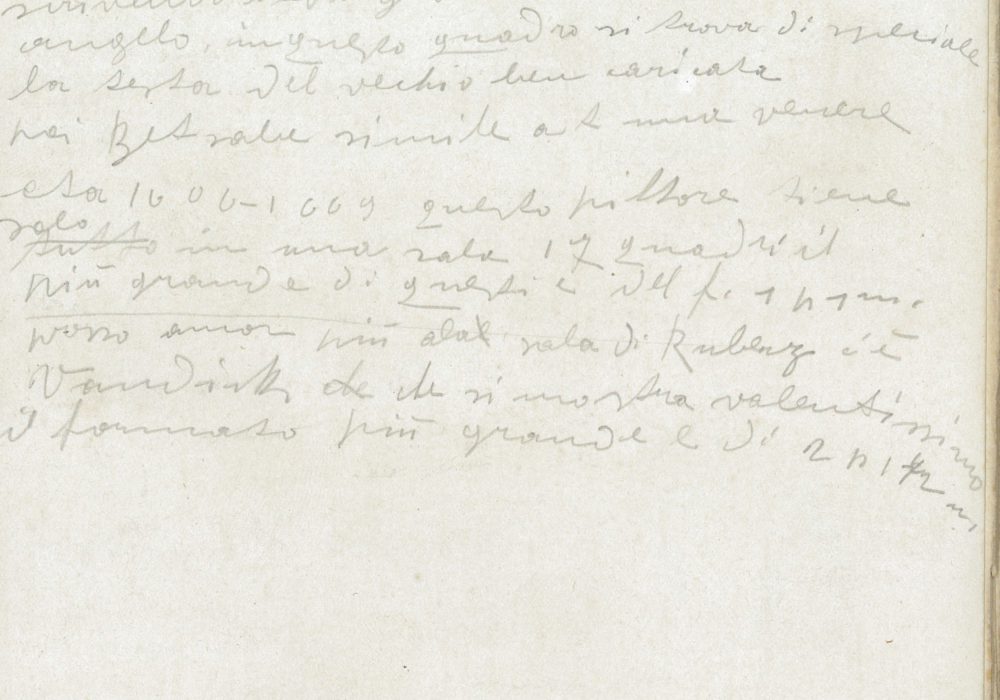 angelo, in questo quadro si trova di speciale
la testa del vechio ben caricata
poi Betsabe simile at una venere
eta 1606-1669 questo pittore tiene
solo
tutto in una sala 17 quadri il
più grande di questi è del f. 1 p 1 m.
posso amor più dal sala di Rubenz c'è
Vandich de che si mostra valentissimo
il formato più grande e di 2 p 1 1/2 m.